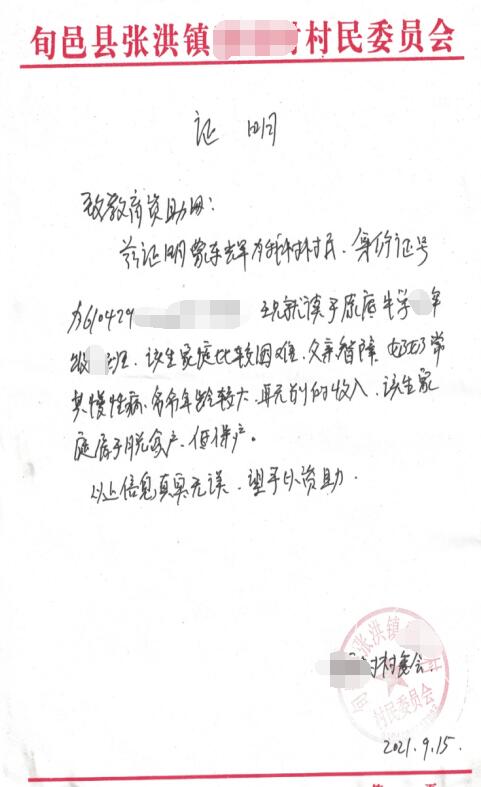 旬邑县张洪镇 村民委员会
证 明
致教育资助网：
兹证明蒙东辉为我村村民、身份证号
为610429 现就读于原底中学 年
级 班．该生家庭比较困难．父亲智障．妈妈常
其慢性病．爷爷年龄较大．再无别的收入．该生家
庭属于脱贫户、低保户。
以上信息真实无误．望予以资助．
张洪镇
村民委员会
村村委会．
2021.9.15.